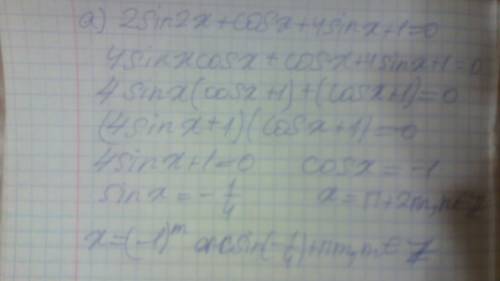 а) 2sin2x+cosx+4sinx+1=0
4sinxcosx+cosx+4sinx+1=0
4sinx(cosx+1)+(cosx+1)=0
(4sinx+1)(cosx+1)=0
4sinx+1=0 cosx=-1
sinx=-1/4 x=π+2πn, n∈Z
x=(-1)^m arcsin(-1/4)+πm, m∈Z